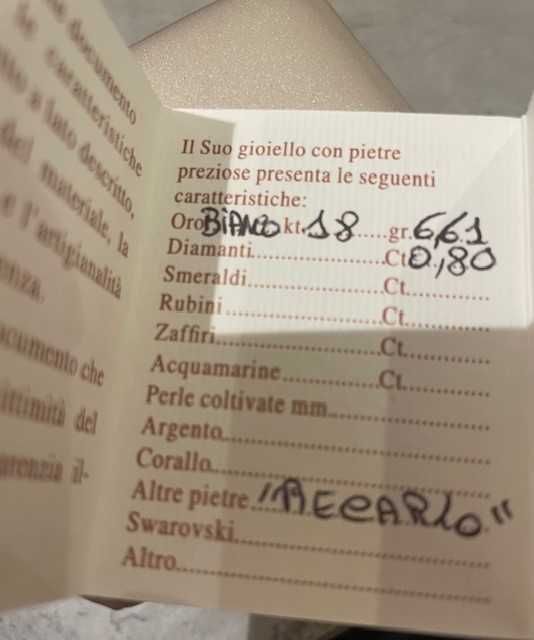 documento
le caratteristiche
a lato descritto,
del materiale, la
e l'artigianalità
documento che
del
il-
Il Suo gioiello con pietre
preziose presenta le seguenti
caratteristiche:
Oro BIANCO kt. 18 .....gr. 6,61
Diamanti........................Ct 0,80
Smeraldi........................Ct............
Rubini...........................Ct............
Zaffiri...........................Ct............
Acquamarine.................Ct............
Perle coltivate mm........................
Argento........................................
Corallo.........................................
Altre pietre "RECARLO"
Swarovski....................................
Altro.............................................